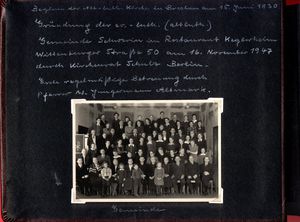 Beginn der Alt-luth. Kirche in Breslau am 15. Juni 1830
Gründung der ev.-luth. (altluth.)
Gemeinde Schwerin im Restaurant Kegelerheim
Wittenburger Straße 50 am 16. November 1947
durch Kirchenrat Schulz Berlin.
Erste regelmäßige Betreuung durch
Pfarrer W. Jungermann Altmark.
Gemeinde